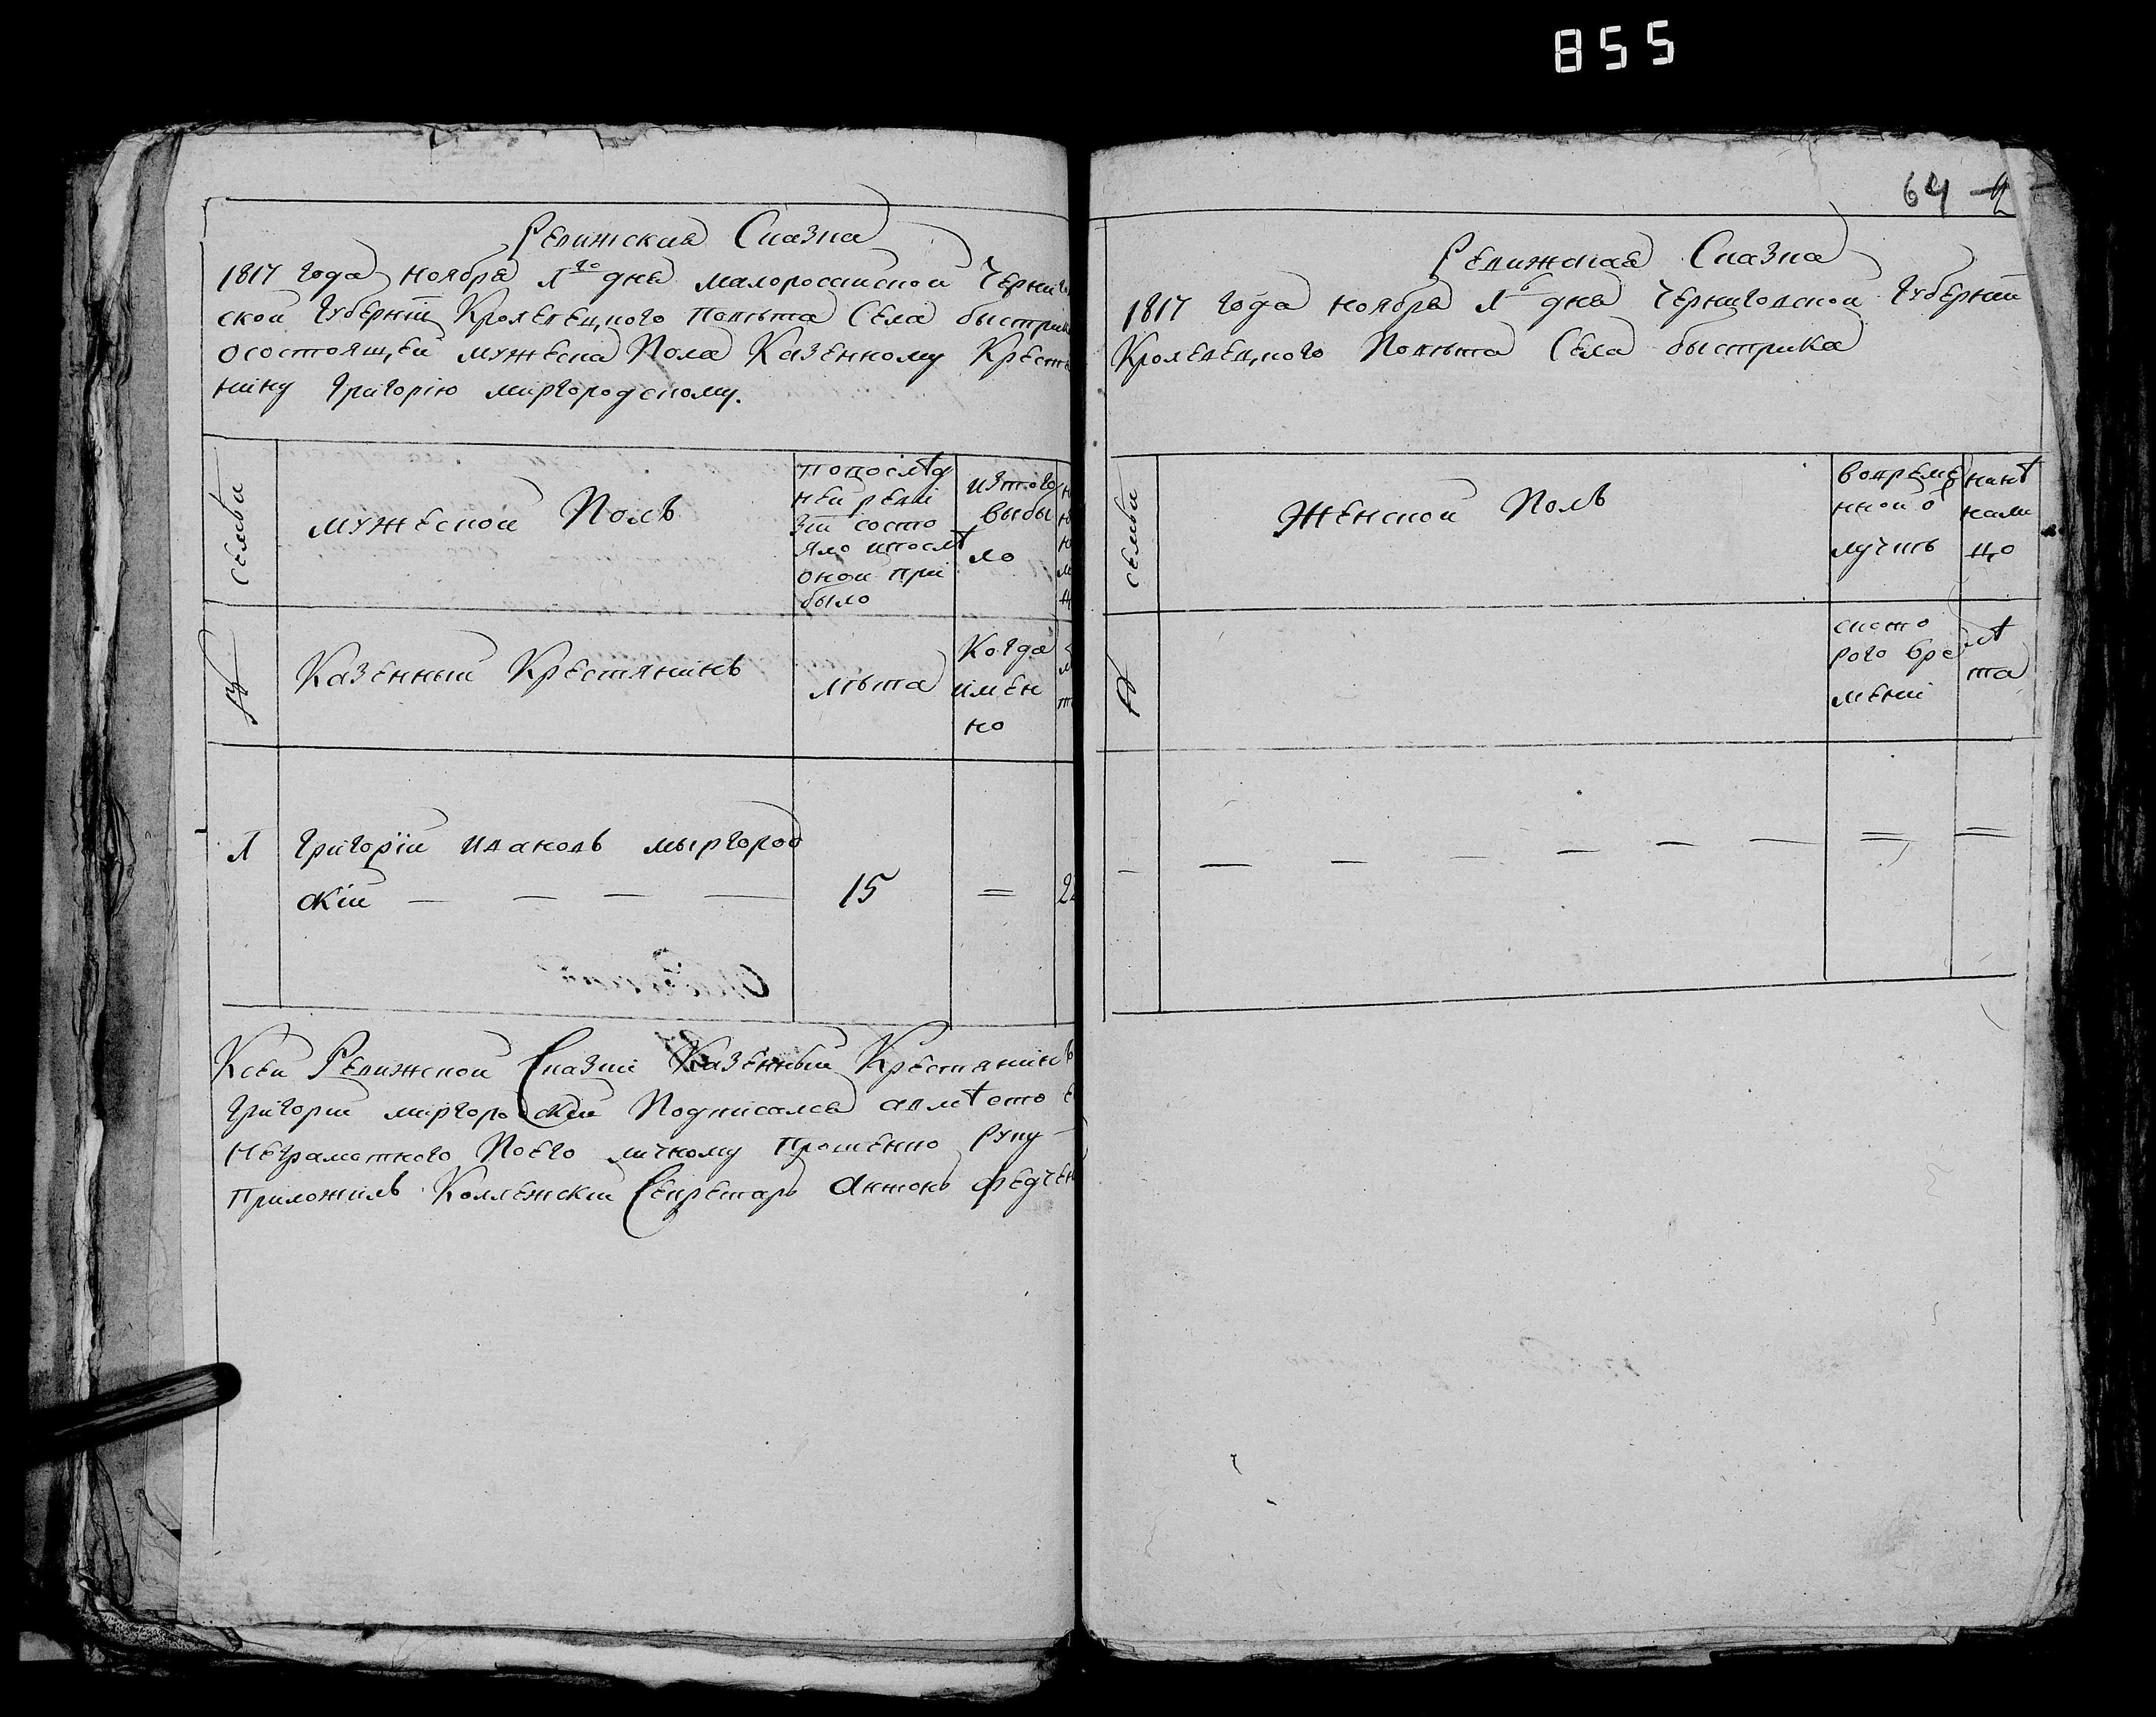 855
Ревижская Сказка
1817 года ноября 1го дня малоросийской Черниго
ской Губернїи Кролевецкого Повѣта Села быстрик
осостоящей мужеска Пола Казенному Крестя
нину Григорїю миргородскому.
семьи
мужеской Полъ
попослѣд
ней реви
зїи состо
яло ипослѣ
оной при
было
изтого
выбы
ло
№
Казенный Крестянинъ
лѣта
Когда
имен
но
1
Григорїй ивановъ мыргород
скїй — — — —
15
=
Ксей Ревижской Сказки Казенный Крестянинъ
Григорий миргородскїй Подписался авмѣсто е
Неграмотного Поего личному прошенію Руку
приложилъ Коллежскїй Секретарь Антонъ Федчен
64
Ревижская Сказка
1817 года ноября 1 дня Черниговской Губернїи
Кролевецкого Повѣта Села быстрика
семьи
Женской Полъ
вовреме
нной о
лучить
нинѣ
нали
цо
№
ското
рого вре
мени
лѣ
та
— — — — — — — = =